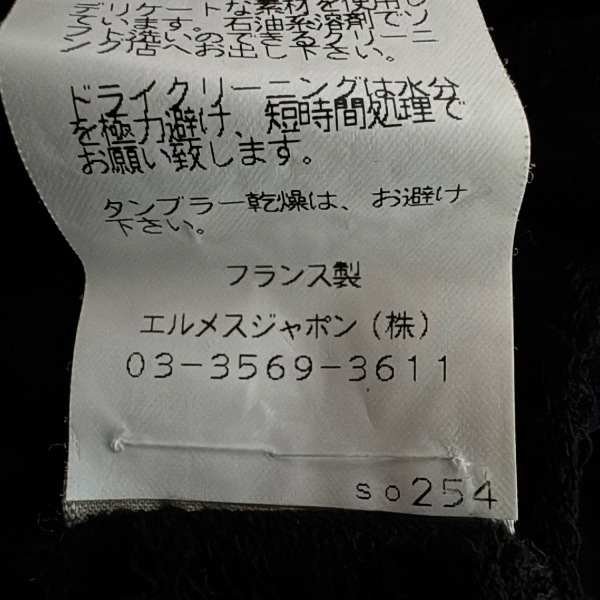 デリケートな素材を使用し
ています。石油系溶剤でソ
フト洗いのできるクリーニ
ング店へお出し下さい。
ドライクリーニングは水分
を極力避け、短時間処理で
お願い致します。
タンブラー乾燥は、お避け
下さい。
フランス製
エルメスジャポン(株)
03-3569-3611
so254